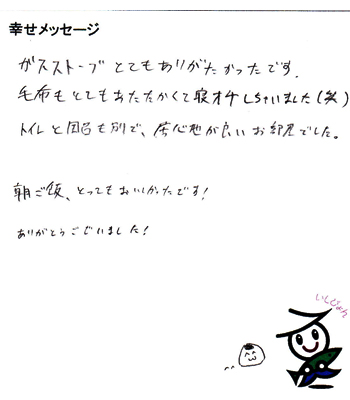 幸せメッセージ
ガスストーブとてもありがたかったです。
毛布もとてもあたたかくて寝オチしちゃいました(笑)
トイレと風呂も別で、居心地が良いお部屋でした。
朝ご飯、とってもおいしかったです!
ありがとうございました!
いしじょん